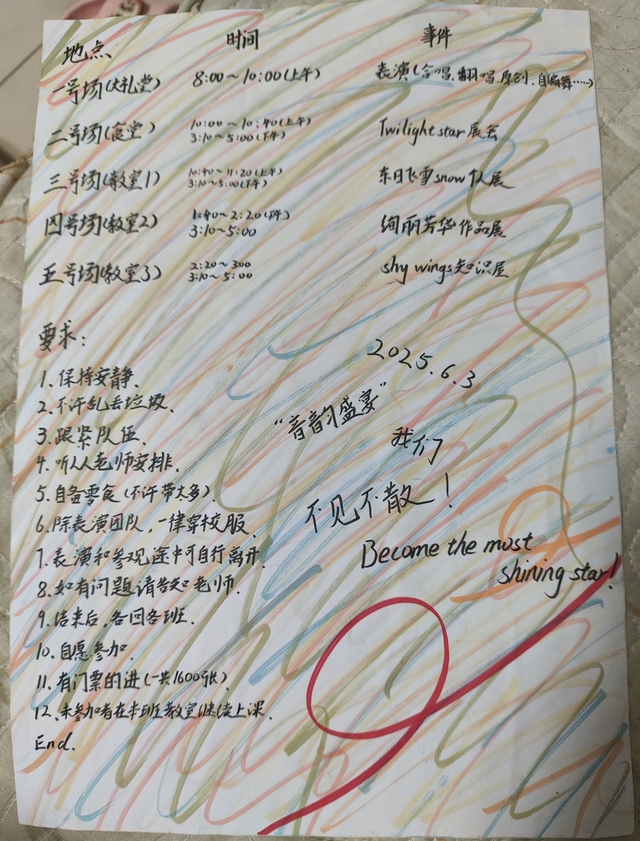 地点 时间 事件
一号场(大礼堂) 8:00~10:00(上午) 表演(合唱、翻唱、原创、自编舞……)
二号场(食堂) 10:00~10:40(上午) 3:10~5:00(下午) Twilight star 展会
三号场(教室1) 10:40~11:20(上午) 3:10~5:00(下午) 东日飞雪snow 队展
四号场(教室2) 1:40~2:20(下午) 3:10~5:00 绚丽芳华作品展
五号场(教室3) 2:20~300 3:10~5:00 shy wings知识屋
要求:
1.保持安静.
2.不许乱丢垃圾.
3.跟紧队伍.
4.听从老师安排.
5.自备零食(不许带太多).
6.除表演团队,一律穿校服.
7.表演和参观途中可自行离开.
8.如有问题请告知老师.
9.结束后,各回各班.
10.自愿参加.
11.有门票的进(一共1600张)
12.未参加者在本班教室继续上课.
End.
2025.6.3
“音韵盛宴”
我们
不见不散!
Become the most
shining star!